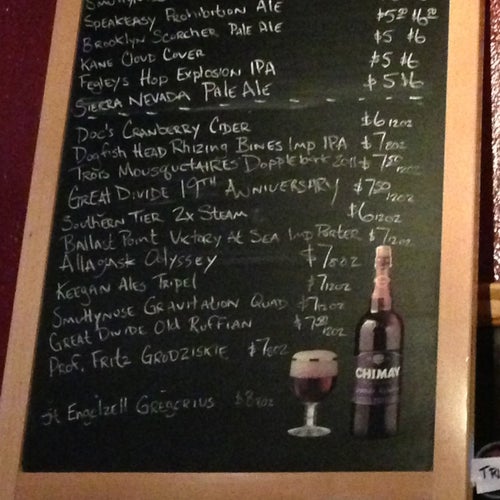 Speakeasy Prohibition Ale $5.50 $6.50
Brooklyn Scorcher Pale Ale
Kane Cloud Cover $5 $6
Fegleys Hop Explosion IPA $5 $6
Sierra Nevada Pale Ale $5 $6
Doc's Cranberry Cider $6 12oz
Dogfish Head Rhizing Bines Imp IPA $7 8oz
Trois Mousquetaires Dopplebock 2011 $7.50
Great Divide 19th Anniversary $7.50 12oz
Southern Tier 2x Steam $6 12oz
Ballast Point Victory at Sea Imp Porter $7 12oz
Allagash Odyssey $7 8oz
Keegan Ales Tripel $7 12oz
Smuttynose Gravitation Quad $7 12oz
Great Divide Old Ruffian $7.50 12oz
Prof. Fritz Grodziskie $7 8oz
St Engelzell Gregorius $8 8oz
CHIMAY